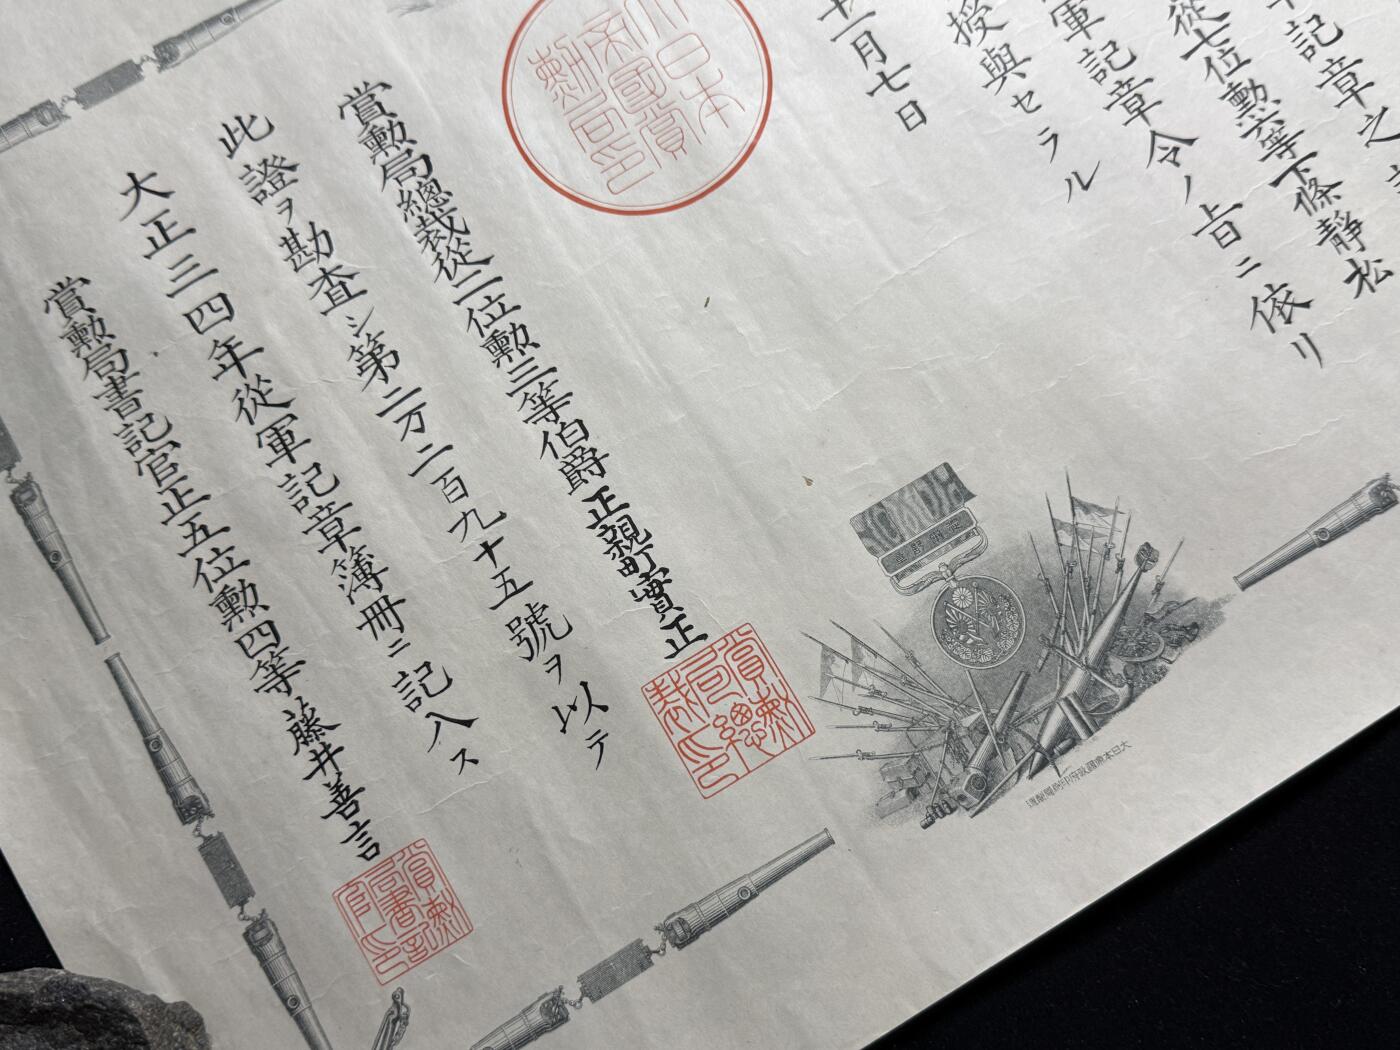 記章之
從七位勲六等下條靜松
軍記章令ノ旨ニ依リ
授與セラル
十一月七日
大日本
帝國賞
勲局印
賞勲局總裁從二位勲三等伯爵正親町實正
賞勲
局總
裁印
此證ヲ勘査シ第二万二百九十五號ヲ以テ
大正三四年從軍記章簿冊ニ記入ス
賞勲局書記官正五位勲四等藤井善言
賞勲
局書記
官印
大日本帝國政府印刷局製造